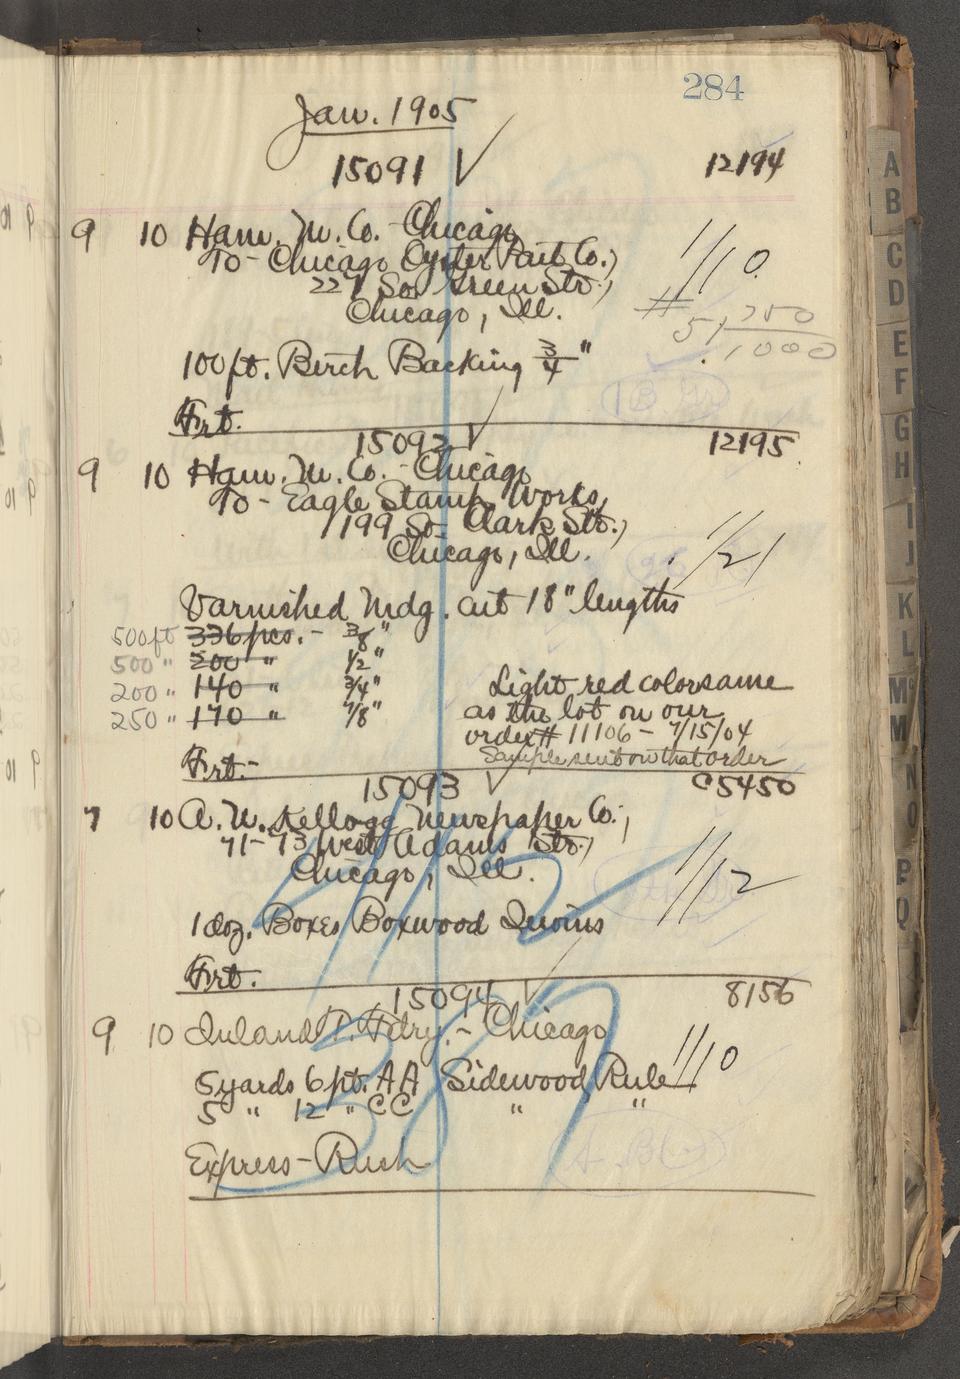 284
Jan. 1905
15091 √ 12194
9 10 Ham. M. Co. - Chicago
To - Chicago Oyster Pail Co.,
227 So. Green Str.,
Chicago, Ill.
1/10
# 5 / 750
1000
100 ft. Birch Backing 3/4"
Frt.
15092 √ 12195
9 10 Ham. M. Co. - Chicago
To - Eagle Stamp Works,
199 So. Clark Str.,
Chicago, Ill.
1/21
Varnished Mdg. cut 18" lengths
500 ft 336 pcs. - 3/8"
500 " 200 " 1/2"
200 " 140 " 3/4"
250 " 170 " 7/8"
Light red color same
as the lot on our
order # 11106 - 7/15/04
Sample sent on that order
Frt. -
15093 √ C5450
7 10 A. N. Kellogg Newspaper Co.,
71-73 West Adams Str.,
Chicago, Ill.
1/12
1 doz. Boxes Boxwood Quoins
Frt.
15094 √ 8156
9 10 Inland T. Fdry. - Chicago
1/10
5 yards 6 pt. AA Sidewood Rule
5 " 12 " CC " "
Express - Rush
A
B
C
D
E
F
G
H
I
J
K
L
Mc
M
N
O
P
Q